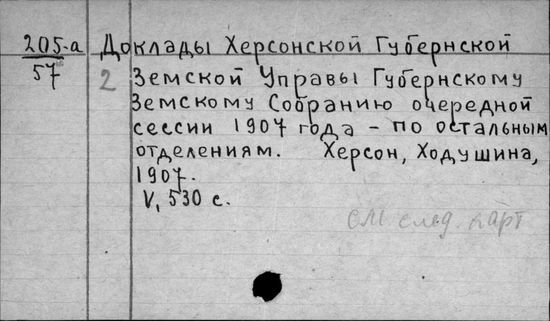 205-а Доклады Херсонской Губернской
57 2 Земской Управы Губернскому
Земскому Собранию очередной
сессии 1907 года - по остальным
отделениям. Херсон, Ходушина,
1907.
V, 530 с.
см след. карт